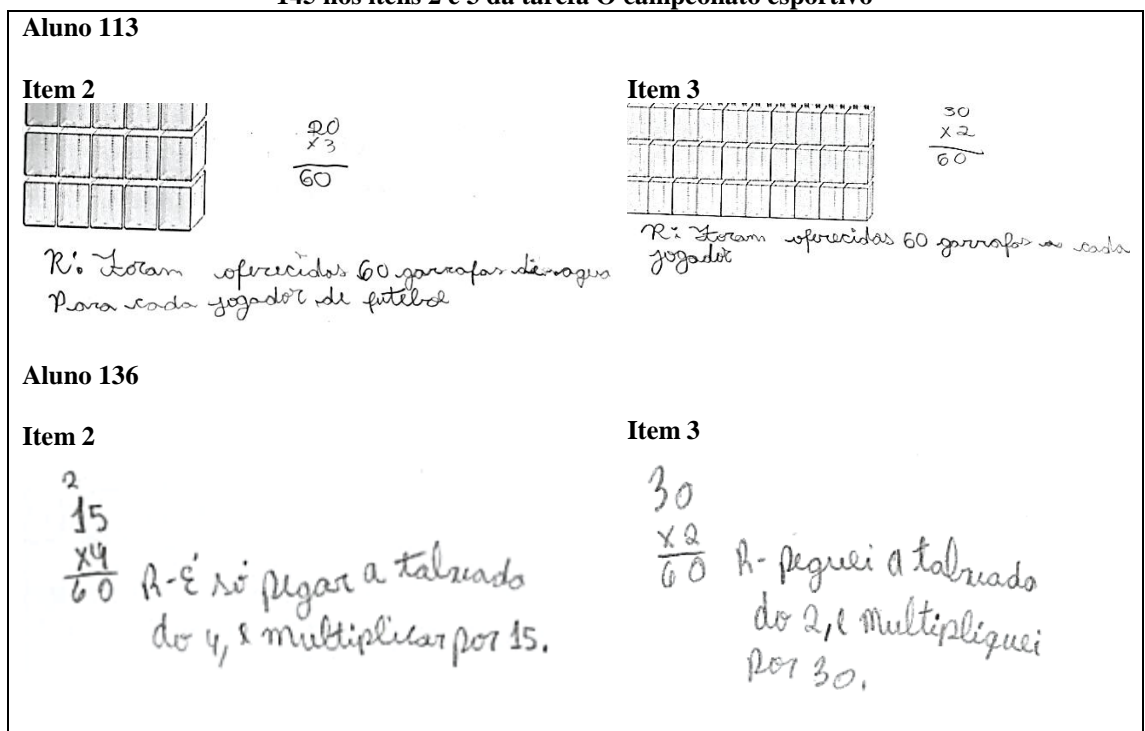 145 nos itens 2 e 3 da tarefa O campeonato esportivo
Aluno 113
Item 2
20
x3
60
R: Foram oferecidas 60 garrafas de agua
Para cada jogador de futebol
Item 3
30
x2
60
R: Foram oferecidas 60 garrafas a cada
jogador
Aluno 136
Item 2
2
15
x4
60 R-É só pegar a tabuada
do 4, e multiplicar por 15.
Item 3
30
x2
60 R- peguei a tabuada
do 2, e multipliquei
por 30.